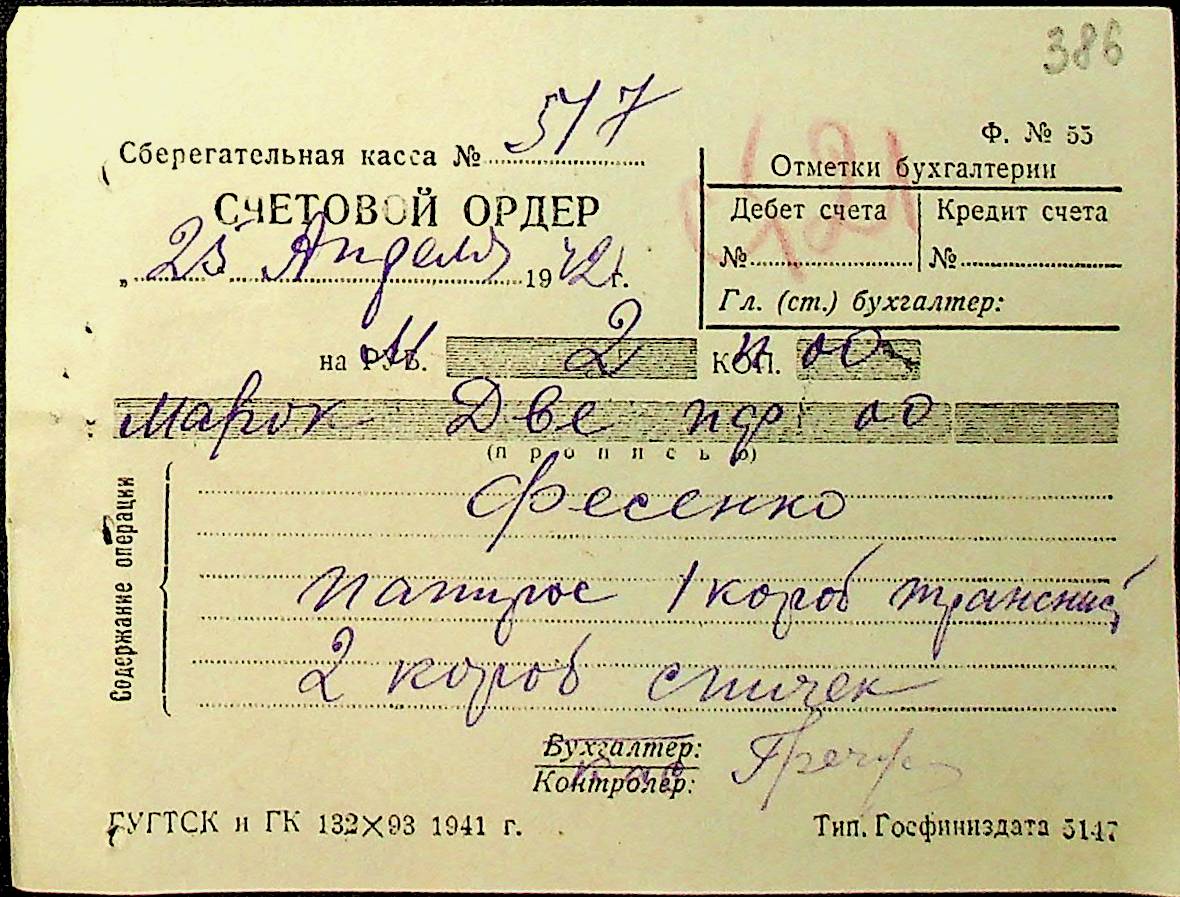 386
Ф. № 55
Сберегательная касса № 517
СЧЕТОВОЙ ОРДЕР
„ 25 Апреля 1942 г.
Отметки бухгалтерии
Дебет счета
Кредит счета
№
№
Гл. (ст.) бухгалтер:
на РУБ. 2 КОП. 00
марок Две пф 00
(прописью)
Содержание операции
Фесенко
папирос 1 короб
2 короб спичек
Бухгалтер:
Контролер:
ГУГТСК и ГК 132×93 1941 г.
Тип. Госфиниздата 5147